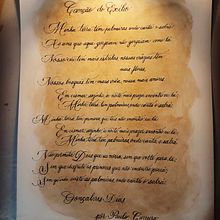 Canção do Exílio
Minha terra tem palmeiras onde canta o sabiá
As aves que aqui gorjeiam não gorjeiam como lá
Nosso céu tem mais estrelas nossas várzeas têm
mais flores
Nossos bosques têm mais vida, nossa mais amores
Em cismar, sozinho, à noite mais prazer encontro eu lá
Minha terra tem palmeiras onde canta o sabiá
Minha terra tem primores que tais não encontro eu cá
Em cismar, sozinho, à noite mais prazer encontro eu lá
Minha terra tem palmeiras onde canta o sabiá
Não permita Deus que eu morra, sem que volte para lá
Sem que desfrute os primores que não encontro por cá
Sem qu'inda aviste as palmeiras onde canta o sabiá
Gonçalves Dias
por Paulo